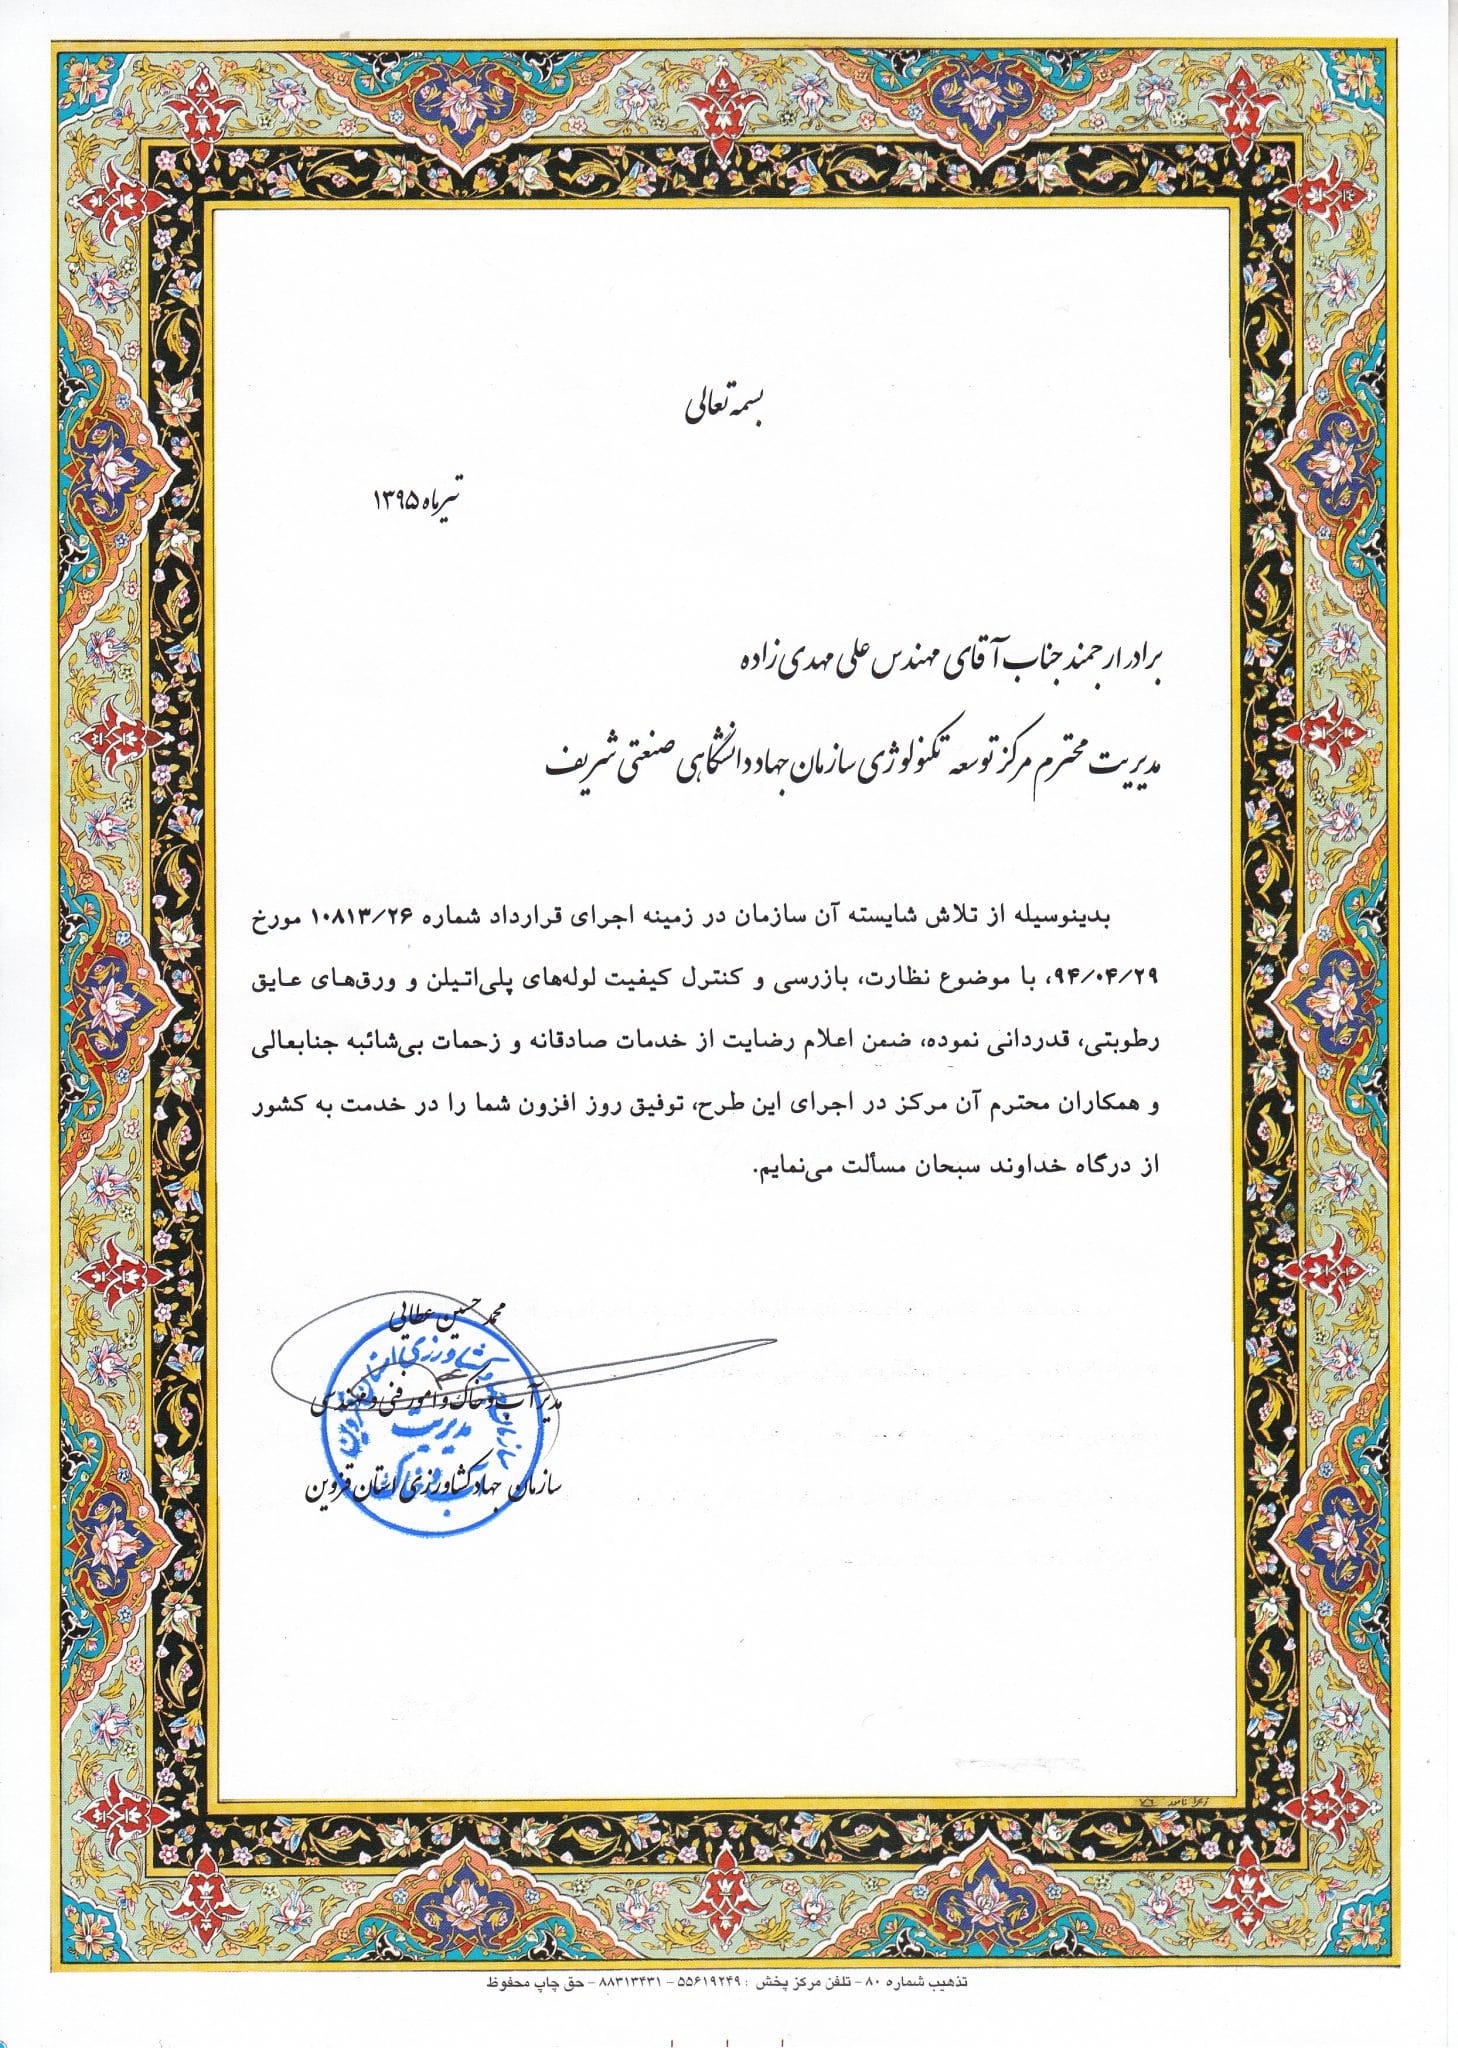 بسمه تعالی
تیرماه ۱۳۹۵
برادر ارجمند جناب آقای مهندس علی مهدی زاده
مدیریت محترم مرکز توسعه تکنولوژی سازمان جهاد دانشگاهی صنعتی شریف
بدینوسیله از تلاش شایسته آن سازمان در زمینه اجرای قرارداد شماره ۱۰۸۱۳/۲۶ مورخ
۹۴/۰۴/۲۹، با موضوع نظارت، بازرسی و کنترل کیفیت لوله‌های پلی‌اتیلن و ورق‌های عایق
رطوبتی، قدردانی نموده، ضمن اعلام رضایت از خدمات صادقانه و زحمات بی‌شائبه جنابعالی
و همکاران محترم آن مرکز در اجرای این طرح، توفیق روز افزون شما را در خدمت به کشور
از درگاه خداوند سبحان مسألت می‌نمایم.
محمد حسین عطایی
مدیر آب و خاک و امور فنی و مهندسی
سازمان جهاد کشاورزی استان قزوین
سازمان جهاد کشاورزی استان قزوین
مدیریت
آب و خاک
زهرا نامور ۷۶
تذهیب شماره ۸۰ - تلفن مرکز پخش : ۵۵۶۱۹۲۴۹ - ۸۸۳۱۳۴۳۱ - حق چاپ محفوظ